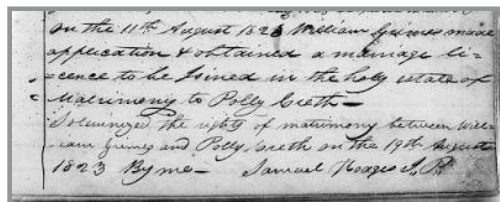 on the 11th August 1823 William Grimes made
application & obtained a marriage li-
-cence to be Joined in the holy estate of
Matrimony to Polly Creth-
Solemnized the rights of matrimony between Will-
iam Grimes and Polly Creth on the 19th Auguste
1823 By me- Samuel Hodges J. P.